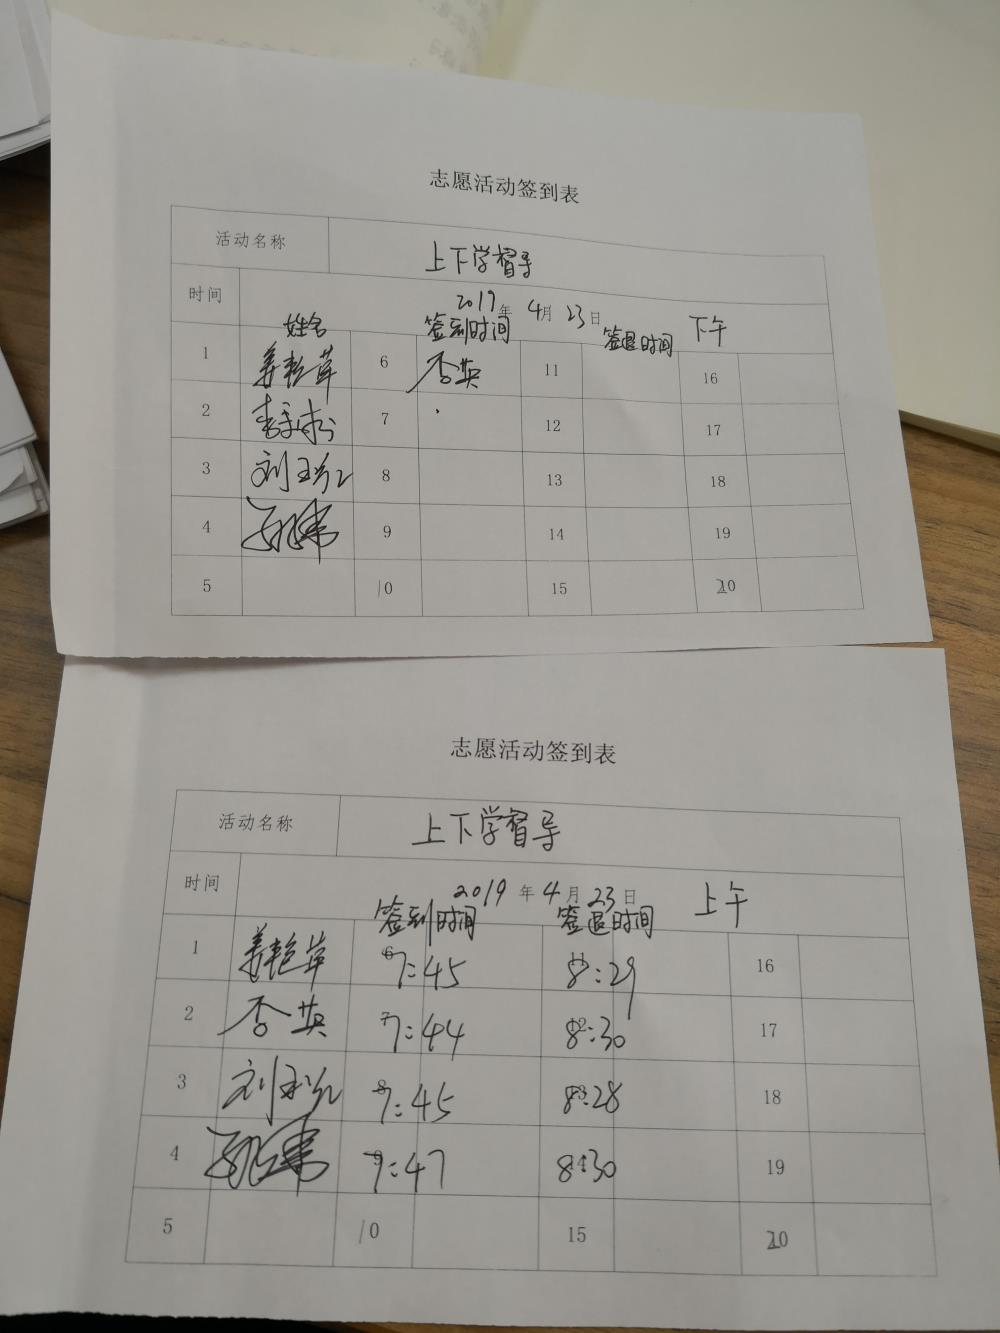 志愿活动签到表
活动名称 上下学督导
时间 2019年 4月 23日 下午
姓名 签到时间 签退时间
1 姜艳苹 6 杏英 11 16
2 7 12 17
3 刘玉红 8 13 18
4 9 14 19
5 10 15 20
志愿活动签到表
活动名称 上下学督导
时间 2019 年 4 月 23 日 上午
签到时间 签退时间
1 姜艳苹 7:45 8:29 16
2 杏英 7:44 8:30 17
3 刘玉红 7:45 8:28 18
4 7:47 8:30 19
5 10 15 20